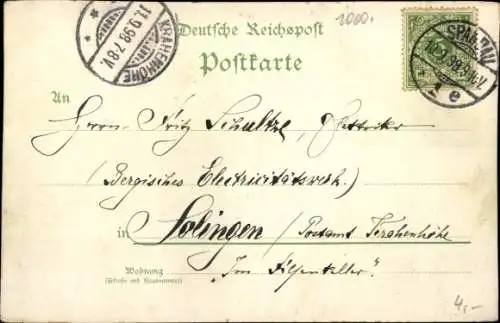 1000.
Deutsche Reichspost
Postkarte
KRAHENHÖHE
11.9.98.7-8V.
SPANDAU
10.9.98.
e
An
Herrn Fritz Schultze,
(Bergisches Electricitätswerk.)
in Solingen / Postamt
Wohnung
(Straße und Hausnummer)
"Im
4,-